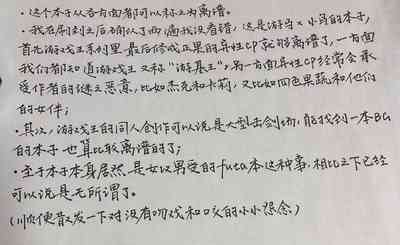 · 这个本子从各方面都可以称之为离谱。
· 我在刷到之后确认了两遍我没看错，这是游戏×小马的本子，
首先游戏王系列里最后修成正果的异性CP就够离谱了，一方面
我们都知道游戏王又称“游基王”，另一方面异性CP经常会承
受作者的谜之恶意，比如杰克和卡莉，又比如四色果蔬和他们
的女伴；
· 其次，游戏王的同人创作可以说是大型击剑场，能找到一本BG
的本子也算比较离谱的了；
· 至于本子本身居然是女攻男受的futa本这种事，相比之下已经
可以说是无所谓了。
（顺便散发一下对没有吻戏和口交的小小怨念）